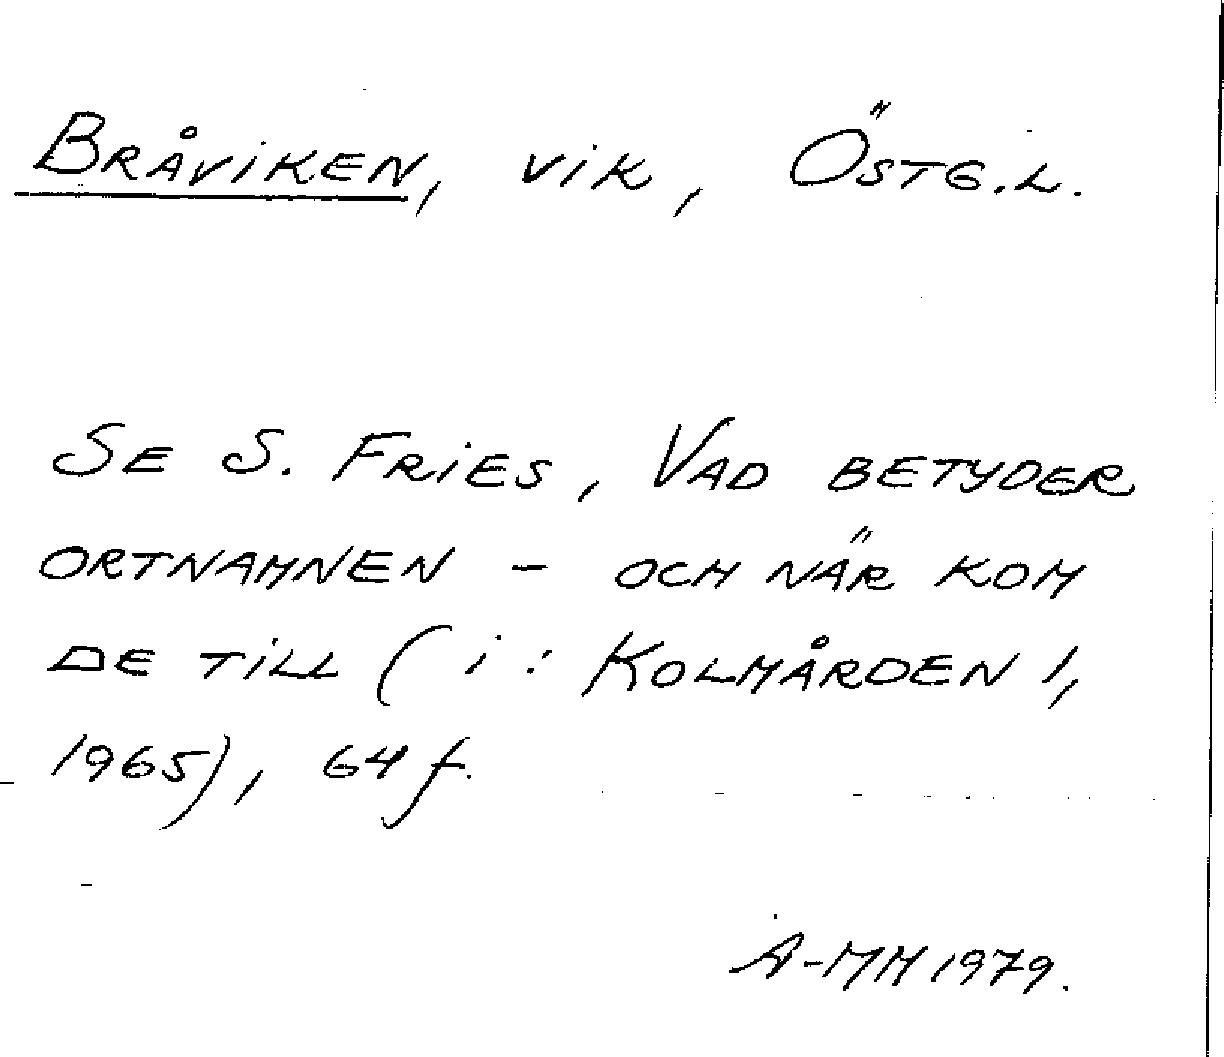 BRÅVIKEN, VIK, ÖSTG.L.
SE S. FRIES, VAD BETYDER
ORTNAMNEN - OCH NÄR KOM
DE TILL (i: KOLMÅRDEN 1,
1965), 64 f.
A-MM 1979.